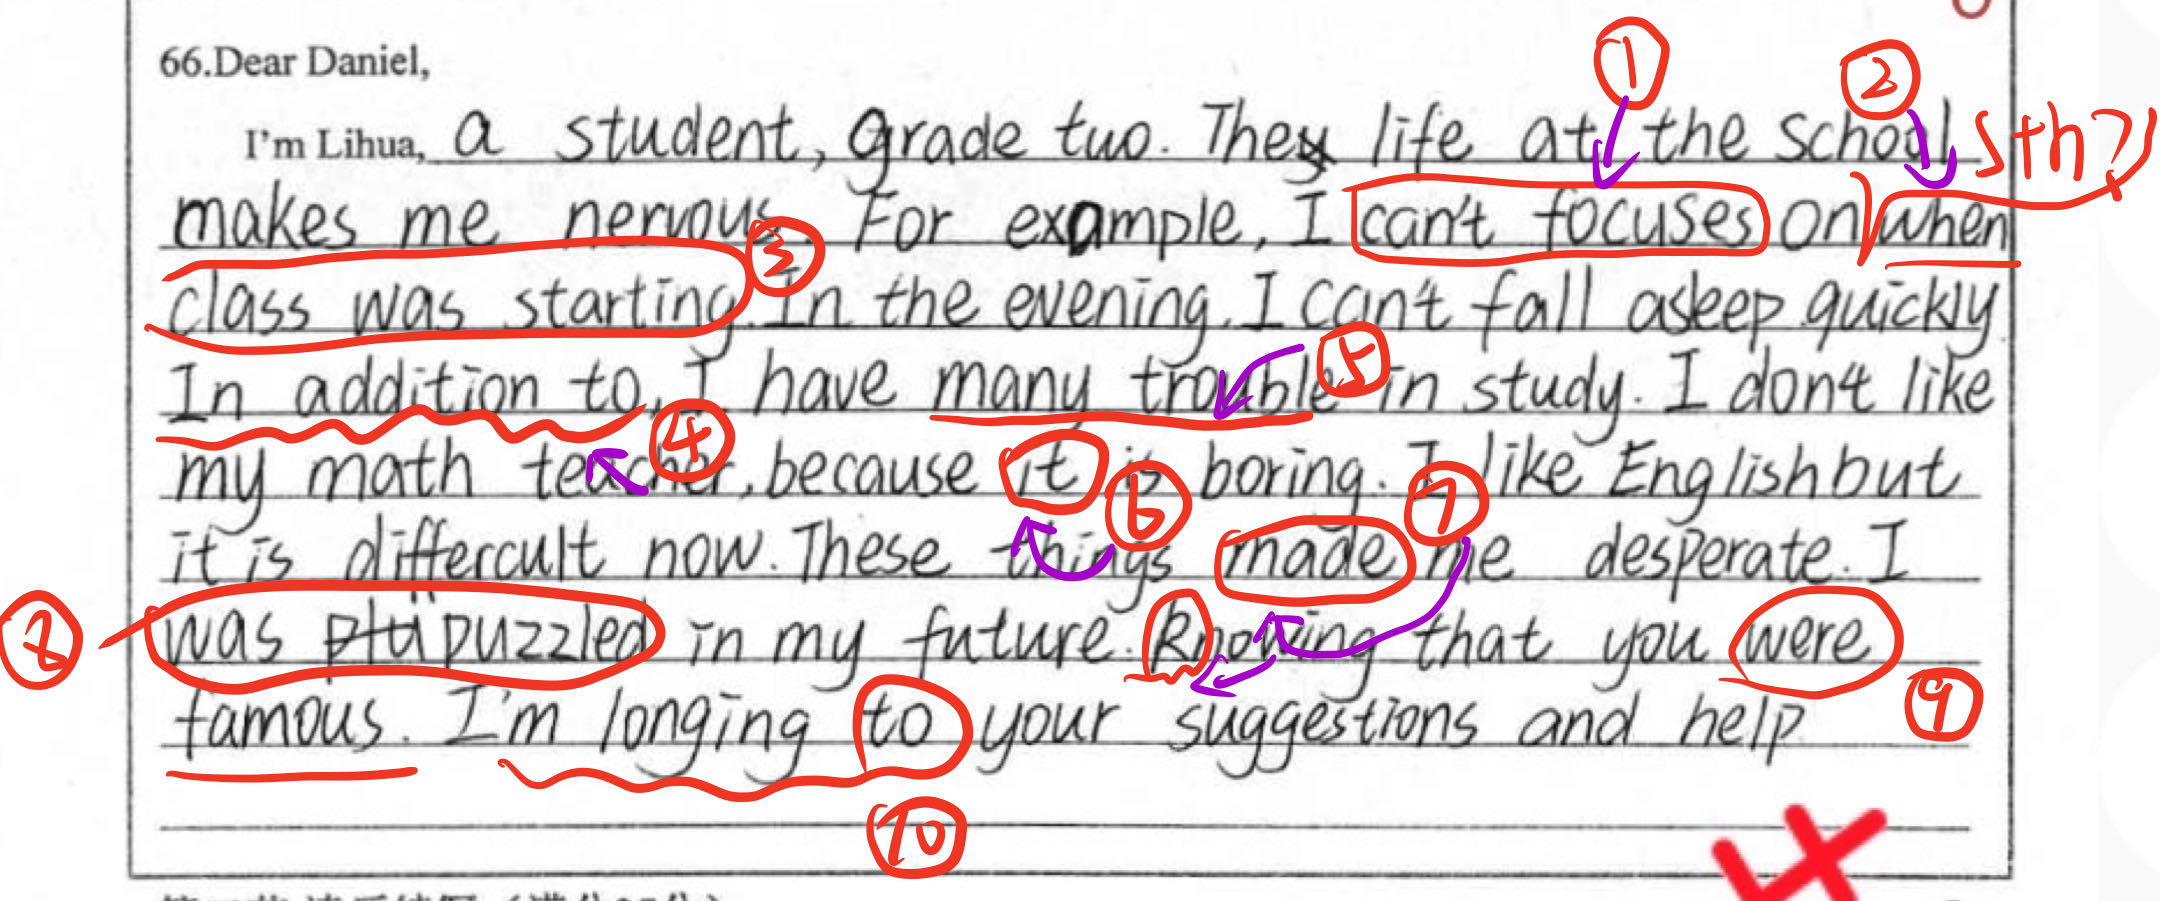 66.Dear Daniel,
I'm Lihua, a student, grade two. They life at the school sth?
makes me nervous. For example, I can't focuses on when
class was starting. In the evening, I can't fall asleep quickly.
In addition to, I have many trouble in study. I don't like
my math teacher, because it is boring. I like English but
it is differcult now. These things made me desperate. I
was puzzled in my future. Knowing that you were
famous. I'm longing to your suggestions and help
① ② ③ ④ ⑤ ⑥ ⑦ ⑧ ⑨ ⑩